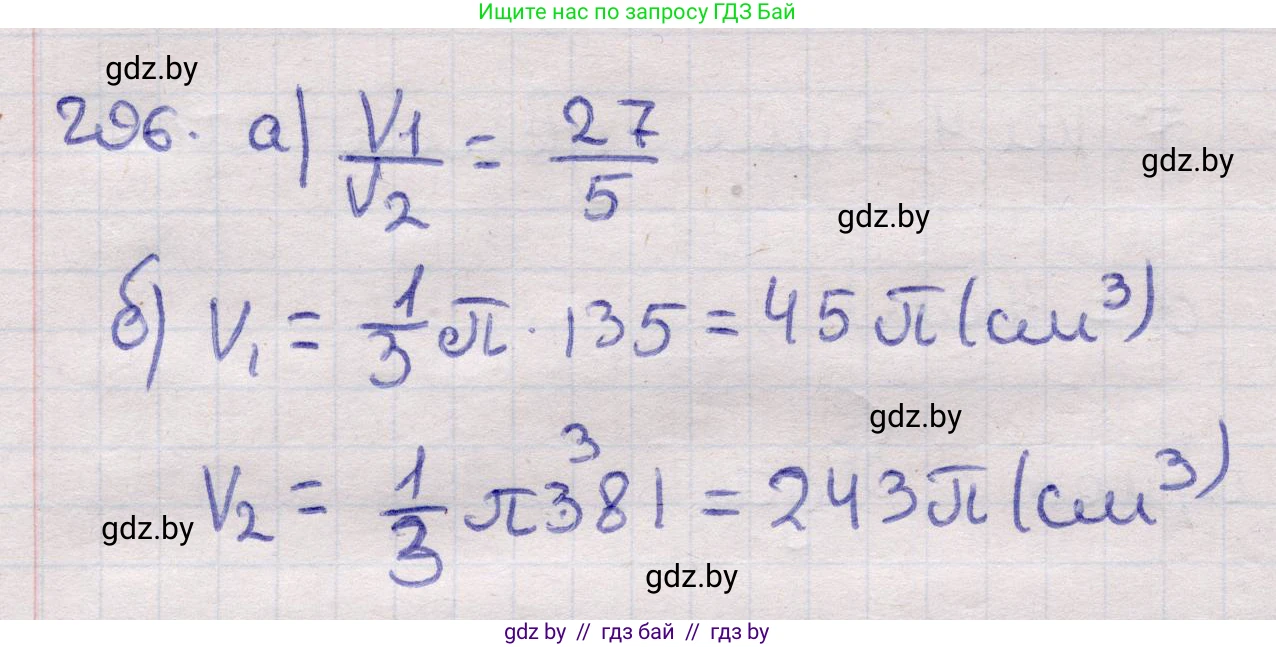 Ищите нас по запросу ГДЗ Бай
gdz.by
296. а) V1/V2 = 27/5
gdz.by
gdz.by
б) V₁ = 1/3 π · 135 = 45 π (см³)
gdz.by
V₂ = 1/3 π 3³ 81 = 243 π (см³)
gdz.by
gdz.by
gdz by // гдз бай // гдз by